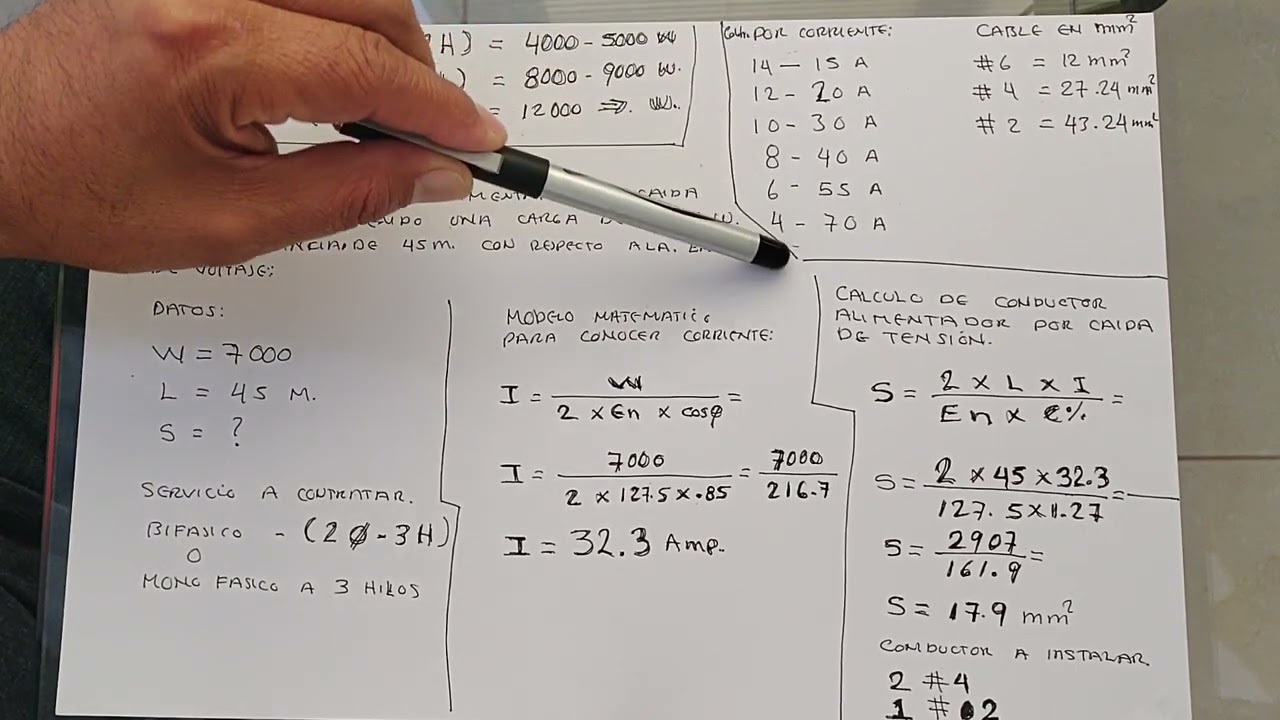 H) = 4000 - 5000 W
) = 8000 - 9000 W.
= 12000 => W..
POR CORRIENTE:
14 - 15 A
12 - 20 A
10 - 30 A
8 - 40 A
6 - 55 A
4 - 70 A
CABLE EN mm²
#6 = 12 mm²
#4 = 27.24 mm²
#2 = 43.24 mm²
CAIDA
UNA CARGA W.
DE 45 M. CON RESPECTO A LA.
DE VOLTAJE:
DATOS:
W = 7000
L = 45 M.
S = ?
SERVICIO A CONTRATAR.
BIFASICO - (2Ø-3H)
O
MONO FASICO A 3 HILOS
MODELO MATEMATIC
PARA CONOCER CORRIENTE:
I = W / 2 x En x cosφ =
I = 7000 / 2 x 127.5 x .85 = 7000 / 216.7
I = 32.3 Amp.
CALCULO DE CONDUCTOR
ALIMENTADOR POR CAIDA
DE TENSION.
S = 2 x L x I / En x e% =
S = 2 x 45 x 32.3 / 127.5 x 1.27 =
S = 2907 / 161.9 =
S = 17.9 mm²
CONDUCTOR A INSTALAR.
2 #4
1 #2